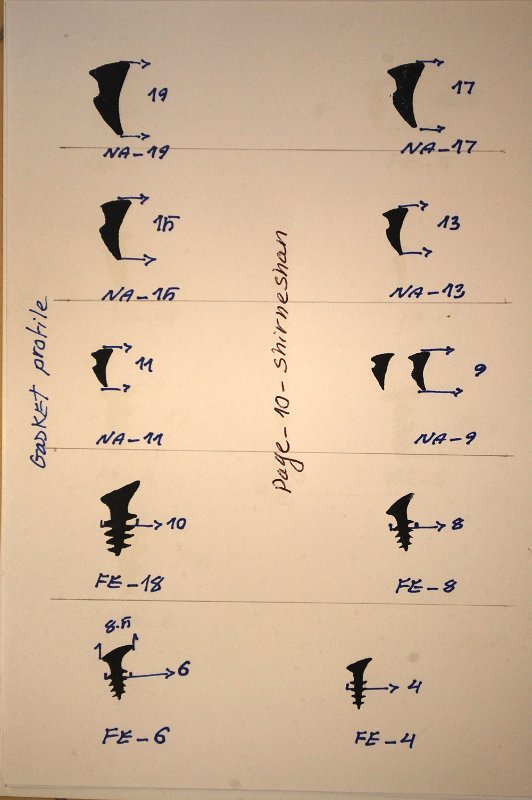 19
17
NA-19
NA-17
15
13
NA-15
NA-13
11
9
NA-11
NA-9
10
8
FE-18
FE-8
8.5
6
4
FE-6
FE-4
Gasket profile
Page-10-shirneshan